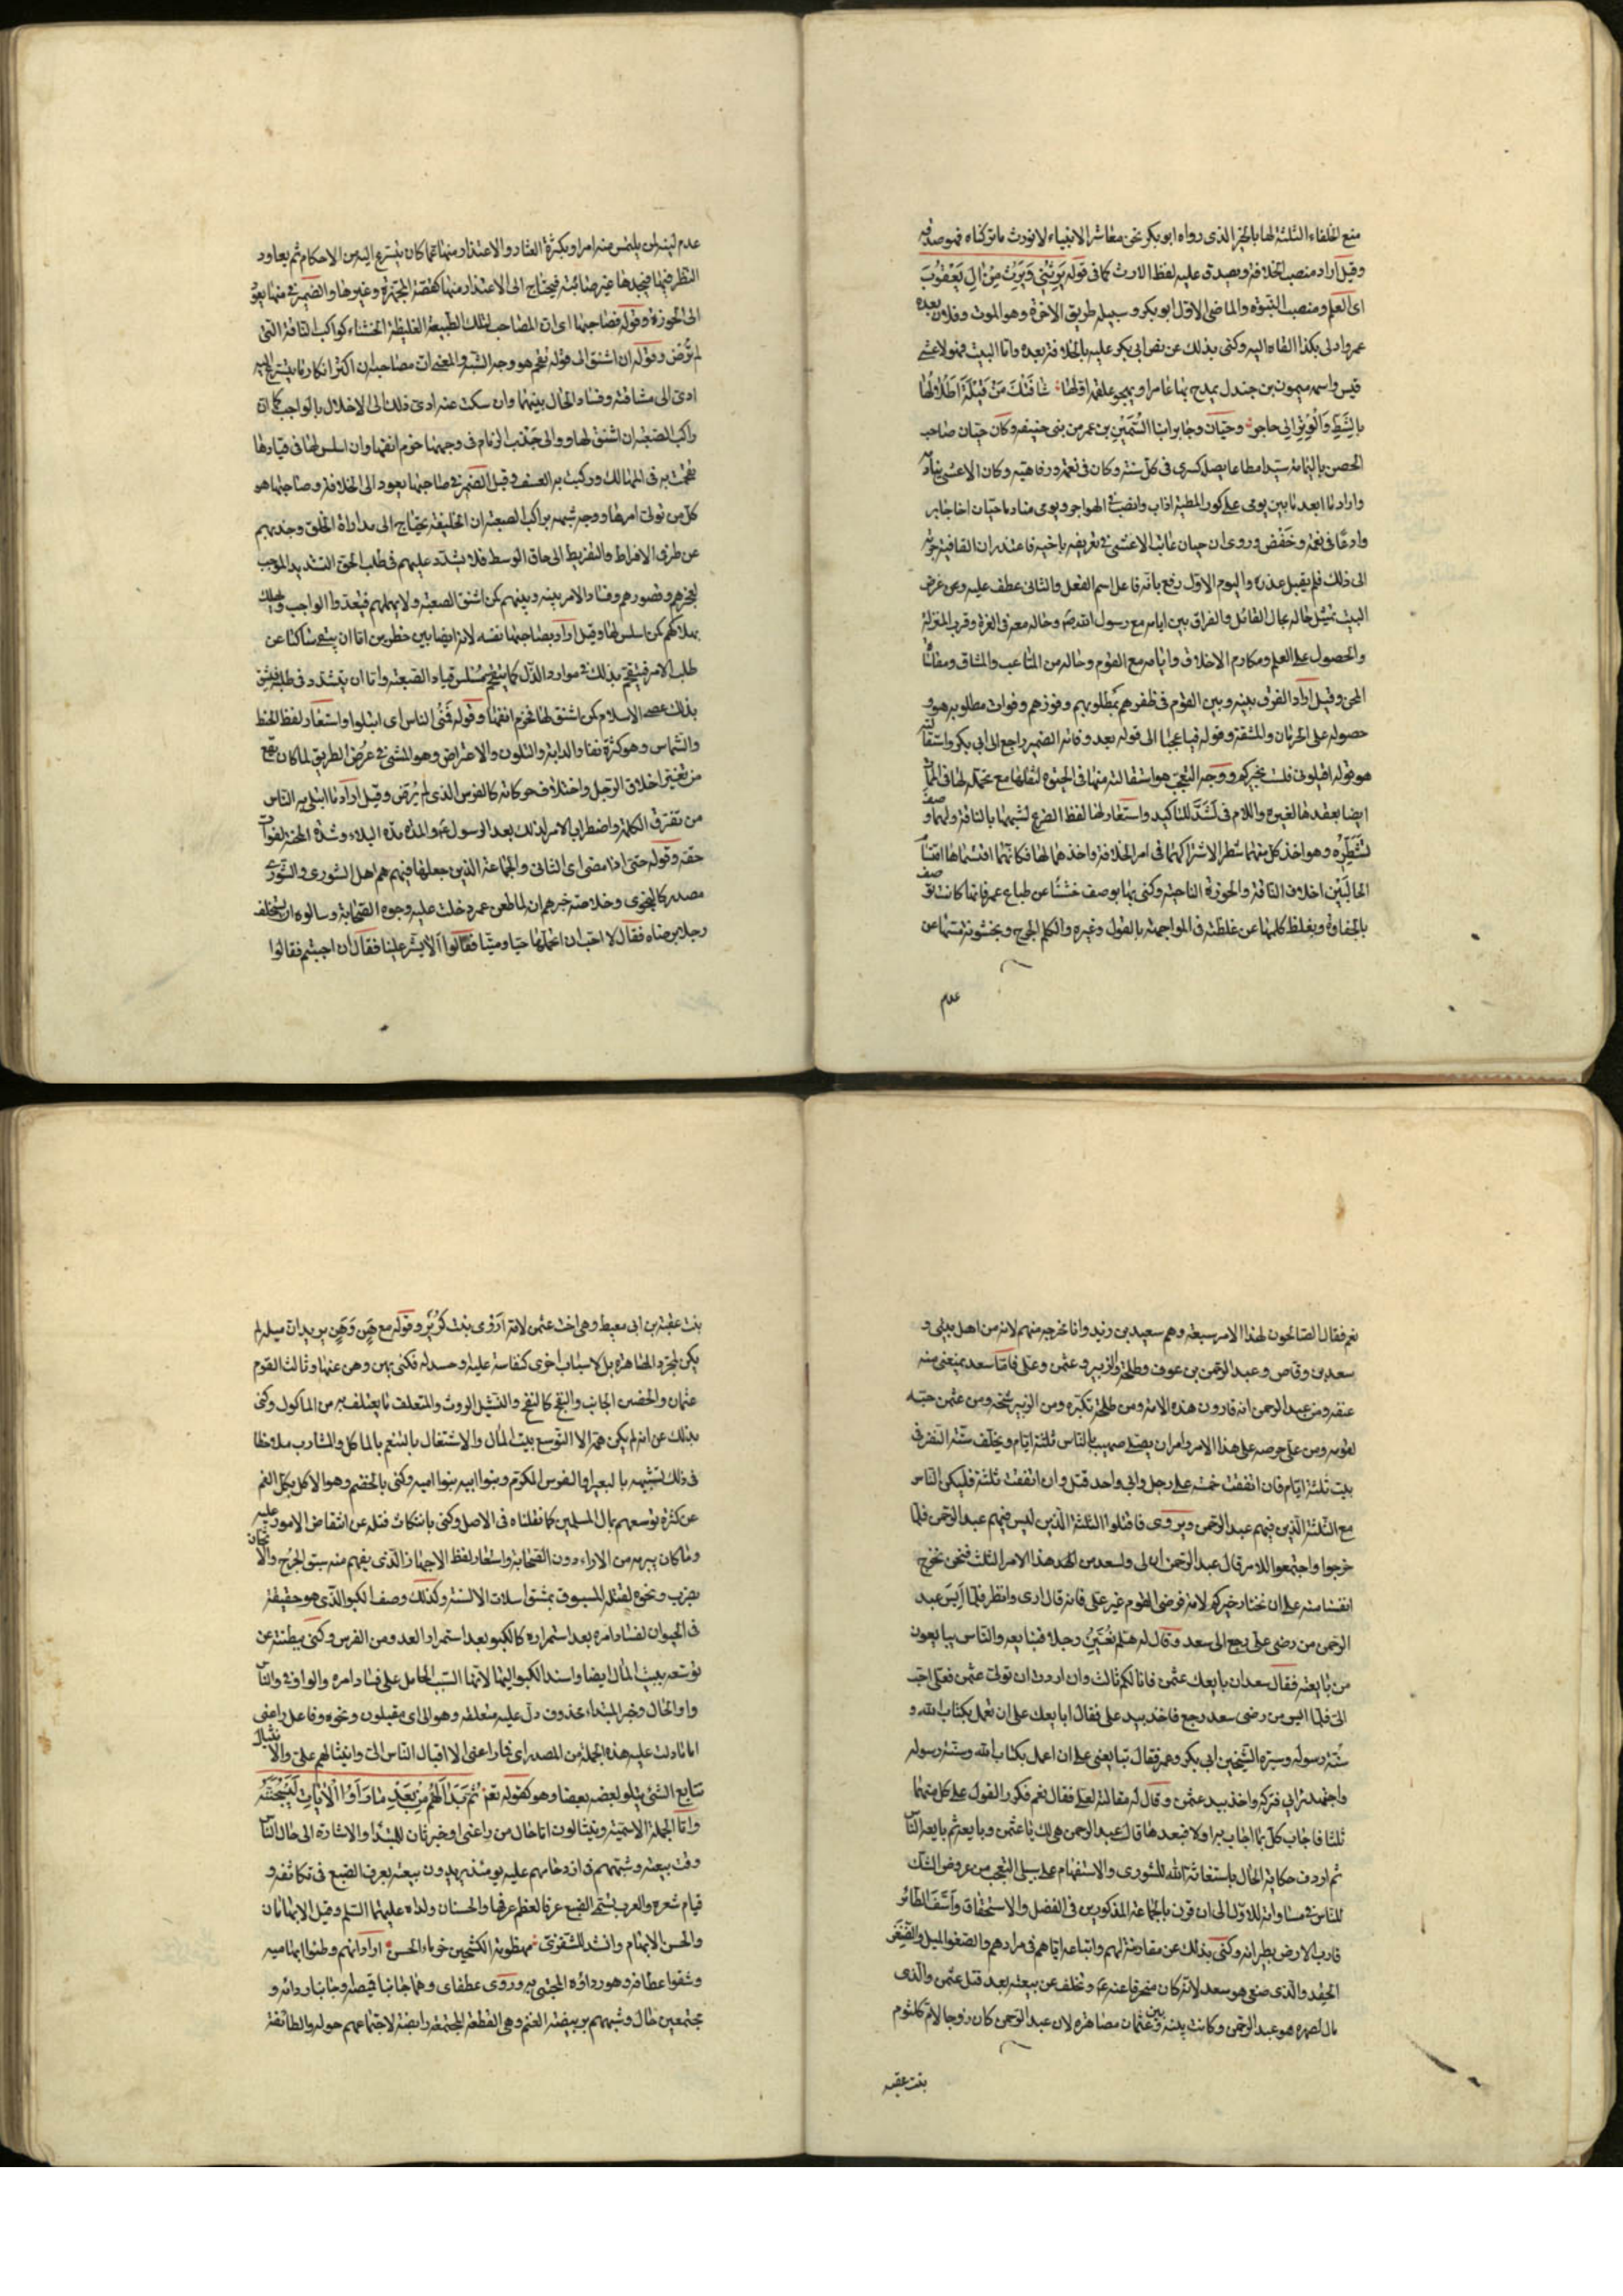 منع الخلفاء الثلثة لها بالخبر الذى رواه ابو بكر نحن معاشر الانبياء لا نورث ما تركناه فهو صدقة
وقيل اراد منصب الخلافة ويصدق عليه لفظ الارث كما فى قوله يَرِثُنِي وَيَرِثُ مِنْ الِ يَعْقُوبَ
اى العلم ومنصب النبوة والماضى الاول ابو بكر وسبيله طريق الاخرة وهو الموت وفلان بعده
عمر وادلى بكذا القاه اليه وكنى بذلك عن نص ابى بكر عليه بالخلافة بعده واما البيت فهو لاعشى
قيس واسمه ميمون بن جندل يمدح بها عامرا ويهجو علقمه اولها
وحيان وجابر ابنا السمين بن عمر من بنى حنيفه وكان حيان صاحب
الحصن باليمامة سيدا مطاعا يصله كسرى فى كل سنة وكان فى نعمة ورفاهية وكان الاعشى ينادمه
واراد ما ابعد ما بين يومى على كور المطية اداب وانصب فى الهواجر ويومى منادما حيان اخا جابر
وادعا فى نعمة وخفض وروى ان حيان عاتب الاعشى فى تعريفه باخيه فاعتذر ان القافية جرته
الى ذلك فلم يقبل عذره واليوم الاول رفع بانه فاعل اسم الفعل والثانى عطف عليه وغرض
البيت تمثيل حاله بحال القائل والفرق بين ايامه مع رسول الله ص وحاله معه فى العزة وقرب المنزلة
والحصول على العلم ومكارم الاخلاق وايامه مع القوم وحاله من المتاعب والمشاق ومقاساة
المحن وقيل اراد الفرق بينه وبين القوم فى ظفرهم بمطلوبهم وفوزهم وفوات مطلوبه هو و
حصوله على الحرمان والمشقة وقوله فيا عجبا الى قوله بعد وفاته الضمير راجع الى ابى بكر واستقالته
هو قوله اقيلونى فلست بخيركم ووجه التعجب هو استقالته منها فى الحيوة لثقلها مع تحمله لها فى الممات
ايضا بعقدها لغيره واللام فى لَشَدَّ للتاكيد واستعار لها لفظ الضرع لشبهها بالناقة ولهما وصف
لتشطره وهو اخذ كل منهما شطرا لاشتراكهما فى امر الخلافة واخذهما لها فكانهما اقتسماها اقتسام
الحالبين اخلاف الناقة والحوزة الناحية وكنى بها بوصف خشنا عن طباع عمر فانها كانت توصف
بالجفاوة وبغلظ كلمها عن غلظته فى المواجهة بالقول وغيره والكلم الجرح وبخشونة مسها عن
عدم
عدم لينه لمن يلتمس منه امرا وبكثرة العثار والاعتذار منها عما كان يتسرع اليه من الاحكام ثم يعاود
النظر فيها فيجدها غير صائبة فيحتاج الى الاعتذار منها كقصة المجهزة وغيرها والضمير فى منها يعود
الى الحوزة وقوله فصاحبها اى ان المصاحب لتلك الطبيعة الغليظة الخشناء كراكب الناقة التى
لم تُرَض وقوله ان اشنق الى قوله تقحم هو وجه الشبه والمعنى ان مصاحبه ان اكثر انكار ما يتسرع اليه
ادى الى مشاقته وفساد الحال بينهما وان سكت عنه ادى ذلك الى الاخلال بالواجب كما ان
راكب الصعبة ان اشنق لها ووالى جذب الزمام فى وجهها خرم انفها وان اسلس لها فى قيادها
تقحمت به فى المهالك وركبت به العسف وقيل الضمير فى صاحبها يعود الى الخلافة وصاحبها هو
كل من تولى امرها ووجه شبهه براكب الصعبة ان الخليفة يحتاج الى مداراة الخلق وجذبهم
عن طرفى الافراط والتفريط الى حاق الوسط فلا يشدد عليهم فى طلب الحق التشديد الموجب
لعجزهم وقصورهم وفساد الامر بينه وبينهم كمن اشنق الصعبة ولا يهملهم فيتعدوا الواجب ويهلك
بهلاكهم كمن اسلس لها وقيل اراد بصاحبها نفسه لانه ايضا بين خطرين اما ان يبقى ساكتا عن
طلب الامر فيتقحم بذلك فى موارد الذل كما يتقحم مسلس قياد الصعبة واما ان يتشدد فى طلبه فيشق
بذلك عصا الاسلام كمن اشنق لها فخرم انفها وقوله فَمُنى الناس اى ابتلوا واستعار لفظ الخبط
والشماس وهو كثرة نفار الدابة والتلون والاعتراض وهو المشى فى عرض الطريق لما كان يقع
من تغير اخلاق الرجل واختلاف حركاته كالفرس الذى لم يُرَض وقيل اراد ما ابتلى به الناس
من تفرق الكلمة واضطراب الامر لذلك بعد الرسول ع والمدة مدة البلاء وشدة المحنة لفوات
حقه وقوله حتى اذا مضى اى الثانى والجماعة الذين جعلها فيهم هم اهل الشورى والشورى
مصدر كالنجوى وخلاصة خبرهم انه لما طعن عمر دخلت عليه وجوه الصحابة وسالوه ان يستخلف
رجلا يرضاه فقال لا احب ان اتحملها حيا وميتا فقالوا الا تشير علينا فقال ان احببتم فقالوا
نعم فقال الصالحون لهذا الامر سبعة وهم سعيد بن زيد وانا مخرجه منهم لانه من اهل بيتى و
سعد بن وقاص وعبد الرحمن بن عوف وطلحة والزبير وعثمن وعلى فاما سعد يمنعنى منه
عنفه ومن عبد الرحمن انه قارون هذه الامة ومن طلحة تكبره ومن الزبير شحه ومن عثمن حبه
لقومه ومن على حرصه على هذا الامر وامر ان يصلى صهيب بالناس ثلثة ايام ويخلف ستة النفر فى
بيت ثلثة ايام فان اتفقت خمسة على رجل وابى واحد قتل وان اتفقت ثلثة فليكن الناس
مع الثلثة الذين فيهم عبد الرحمن ويروى فاقتلوا الثلثة الذين ليس فيهم عبد الرحمن فلما
خرجوا واجتمعوا للامر قال عبد الرحمن ان لى ولسعد من هذا الامر الثلث فنحن نخرج
انفسنا منه على ان نختار خيركم لامة فرضى القوم غير على فانه قال ارى وانظر فلما أيس عبد
الرحمن من رضى على رجع الى سعد وقال له هلم نعين رجلا فنبايعه والناس يبايعون
من بايعته فقال سعد ان بايعك عثمن فانا لكم ثالث وان اردت ان تولى عثمن فعلى احب
الى فلما ايس من رضى سعد رجع فاخذ بيد على فقال ابايعك على ان تعمل بكتاب الله و
سنة رسوله وسيرة الشيخين ابى بكر وعمر فقال تبايعنى على ان اعمل بكتاب الله وسنة رسوله
واجتهد برايى فتركه واخذ بيد عثمن وقال له مقالته لعلى فقال نعم فكرر القول على كل منهما
ثلثا فاجاب كل بما اجاب به اولا فبعدها قال عبد الرحمن هى لك يا عثمن وبايعه ثم بايعه الناس
ثم اردف حكاية الحال باستغاثة الله للشورى والاستفهام على سبيل التعجب من عروض الشك
للناس فى مساواته للاول الى ان قرن بالجماعة المذكورين فى الفضل والاستحقاق وأسَفّ الطائر
قارب الارض بطيرانه وكنى بذلك عن مقاربته لهم واتباعه اياهم فى مرادهم والصغو الميل والضغن
الحقد والذى صغى هو سعد لانه كان منحرفا عنه ع وتخلف عن بيعته بعد قتل عثمن والذى
مال لصهره هو عبد الرحمن وكانت بينه وبين عثمان مصاهرة لان عبد الرحمن كان زوجا لام كلثوم
بنت عقبه
بنت عقبة بن ابى معيط وهى اخت عثمن لامه اروى بنت كريز وقوله مع هن وهن يريد ان ميله لم
يكن لمجرد المصاهرة بل لاسباب اخرى كنفاسة عليه وحسد له فكنى بهن وهن عنها وثالث القوم
عثمان والحضن الجانب والنفج كالنفخ والنثيل الروث والمعتلف ما يعتلف به من الماكول وكنى
بذلك عن انه لم يكن همه الا التوسع ببيت المال والاشتغال بالتنعم بالماكل والمشارب ملاحظا
فى ذلك تشبيهه بالبعير او الفرس المكرم وبنوا ابيه بنوا اميه وكنى بالخضم وهو الاكل بكل الفم
عن كثرة توسعهم بمال المسلمين كما نقلناه فى الاصل وكنى بانتكاث فتله عن انتقاض الامور عليه
وما كان يبرمه من الاراء دون الصحابة واستعار لفظ الاجهاز الذى يفهم منه سبق الجرح والاثخان
بضرب ونحوه لقتله المسبوق بمشق اسلات الالسنة وكذلك وصف الكبو الذى هو حقيقة
فى الحيوان لفساد امره بعد استمراره كالكبو بعد استمرار العدو من الفرس وكنى ببطنته عن
توسعه ببيت المال ايضا واسند الكبو اليها لانها السبب الحامل على فساد امره والواو فى والناس
واو الحال وخبر المبتداء محذوف دل عليه متعلقه وهو الى اى مقبلون ونحوه وفاعل راعنى
اما ما دلت عليه هذه الجملة من المصدر اى فما راعنى الا اقبال الناس الى وانثيالهم على والانثيال
تتابع الشئ يتلو بعضه بعضا وهو كقوله تعالى ثُمَّ بَدَا لَهُمْ مِنْ بَعْدِ مَا رَاَوُا الْايَاتِ لَيَسْجُنُنَّهُ
واما الجملة الاسمية وينثالون اما حال من راعنى او خبر ثان للمبتدا والاشارة الى حال الناس
وقت بيعته وشبههم فى ازدحامهم عليه يومئذ يريدون بيعته بعرف الضبع فى تكاثفه و
قيام شعره والعرب يسمى الضبع عرفا لعظم عرفها والحسنان ولداه عليهما السلم وقيل الابهامان
والحسن الابهام وانشد للشنفرى مهضومة الكشحين خرماء الحسن اراد انهم وطئوا ابهاميه
وشقوا عطافه وهو رداؤه المجتبى به وروى عطفاى وهما جانبا قميصه وجانبا ردائه و
مجتمعين حال وشبههم بربيضة الغنم وهى القطعة المجتمعة رابضة لاجتماعهم حوله والطائفة